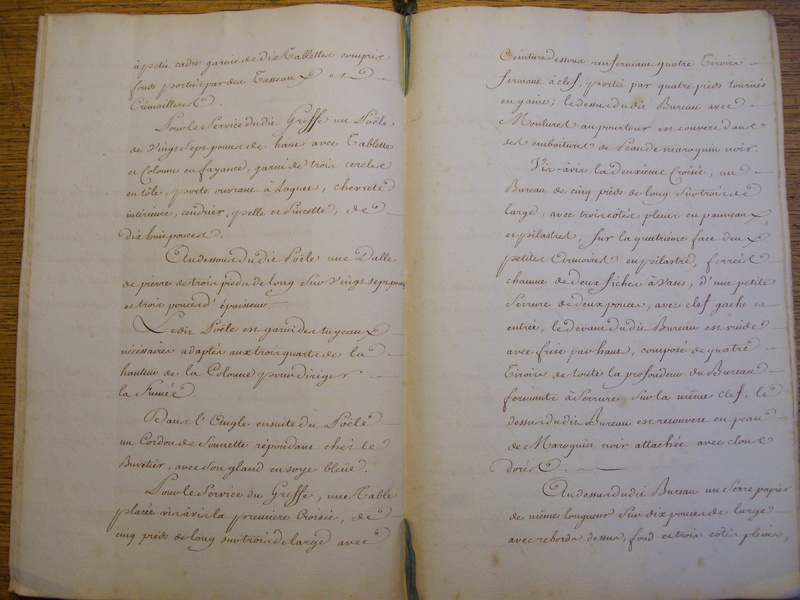 à petit cadre garnie de dix Tablettes compris
fonds portées par des Tasseaux et
Crémailleres.
Pour le Service dudit Greffe un Poêle
de vingt sept pouces de haut avec Tablette
et Colonne en fayance, garni de trois cercles
en tôle, porte ouvrant à Loquet, chevrete
intérieure, cendrier, pelle et Pincette, de
dix huit pouces.
Au dessous dudit Poêle une Dalle
de pierre de trois pieds de long sur vingt sept pouces
et trois pouces d'épaisseur.
Ledit Poêle est garni des tuyeaux
nécessaires adaptés aux trois quarts de la
hauteur de la Colonne pour diriger
la Fumée
Dans l'Angle ensuite du Poêle
un Cordon de Sonnette répondant chés le
Buvetier, avec son gland en soye bleüe.
Pour le Service du Greffe, une Table
placée vis à vis la première Croisée, de
cinq pieds de long sur trois de large avec
Ceinture dessous renfermant quatre Tiroirs
fermant à clef, porté par quatre pieds tournés
en gaine; le dessus dudit Bureau avec
Moulures au pourtour est couvert dans
ses emboitures de Peau de maroquin noir.
Vis-à-vis la deuxieme Croisée, un
Bureau de cinq pieds de long sur trois de
large, avec trois côtés pleins en panneaux
et pilastres, sur la quatrième face deux
petites Armoires en pilastres, ferrées
chacune de deux fiches à vases, d'une petite
Serrure de deux pouces, avec clef gache et
entrée, le devant dudit Bureau est vuide
avec frise par haut, composé de quatre
Tiroirs de toute la profondeur du Bureau
fermants à Serrure sur la même clef, le
dessus dudit Bureau est recouvert en peau
de Maroquin noir attachée avec clous
dorés.
Au dessus dudit Bureau un Serre papier
de même longueur sur dix pouces de large
avec rebords dessus, fond et trois côtés pleins,